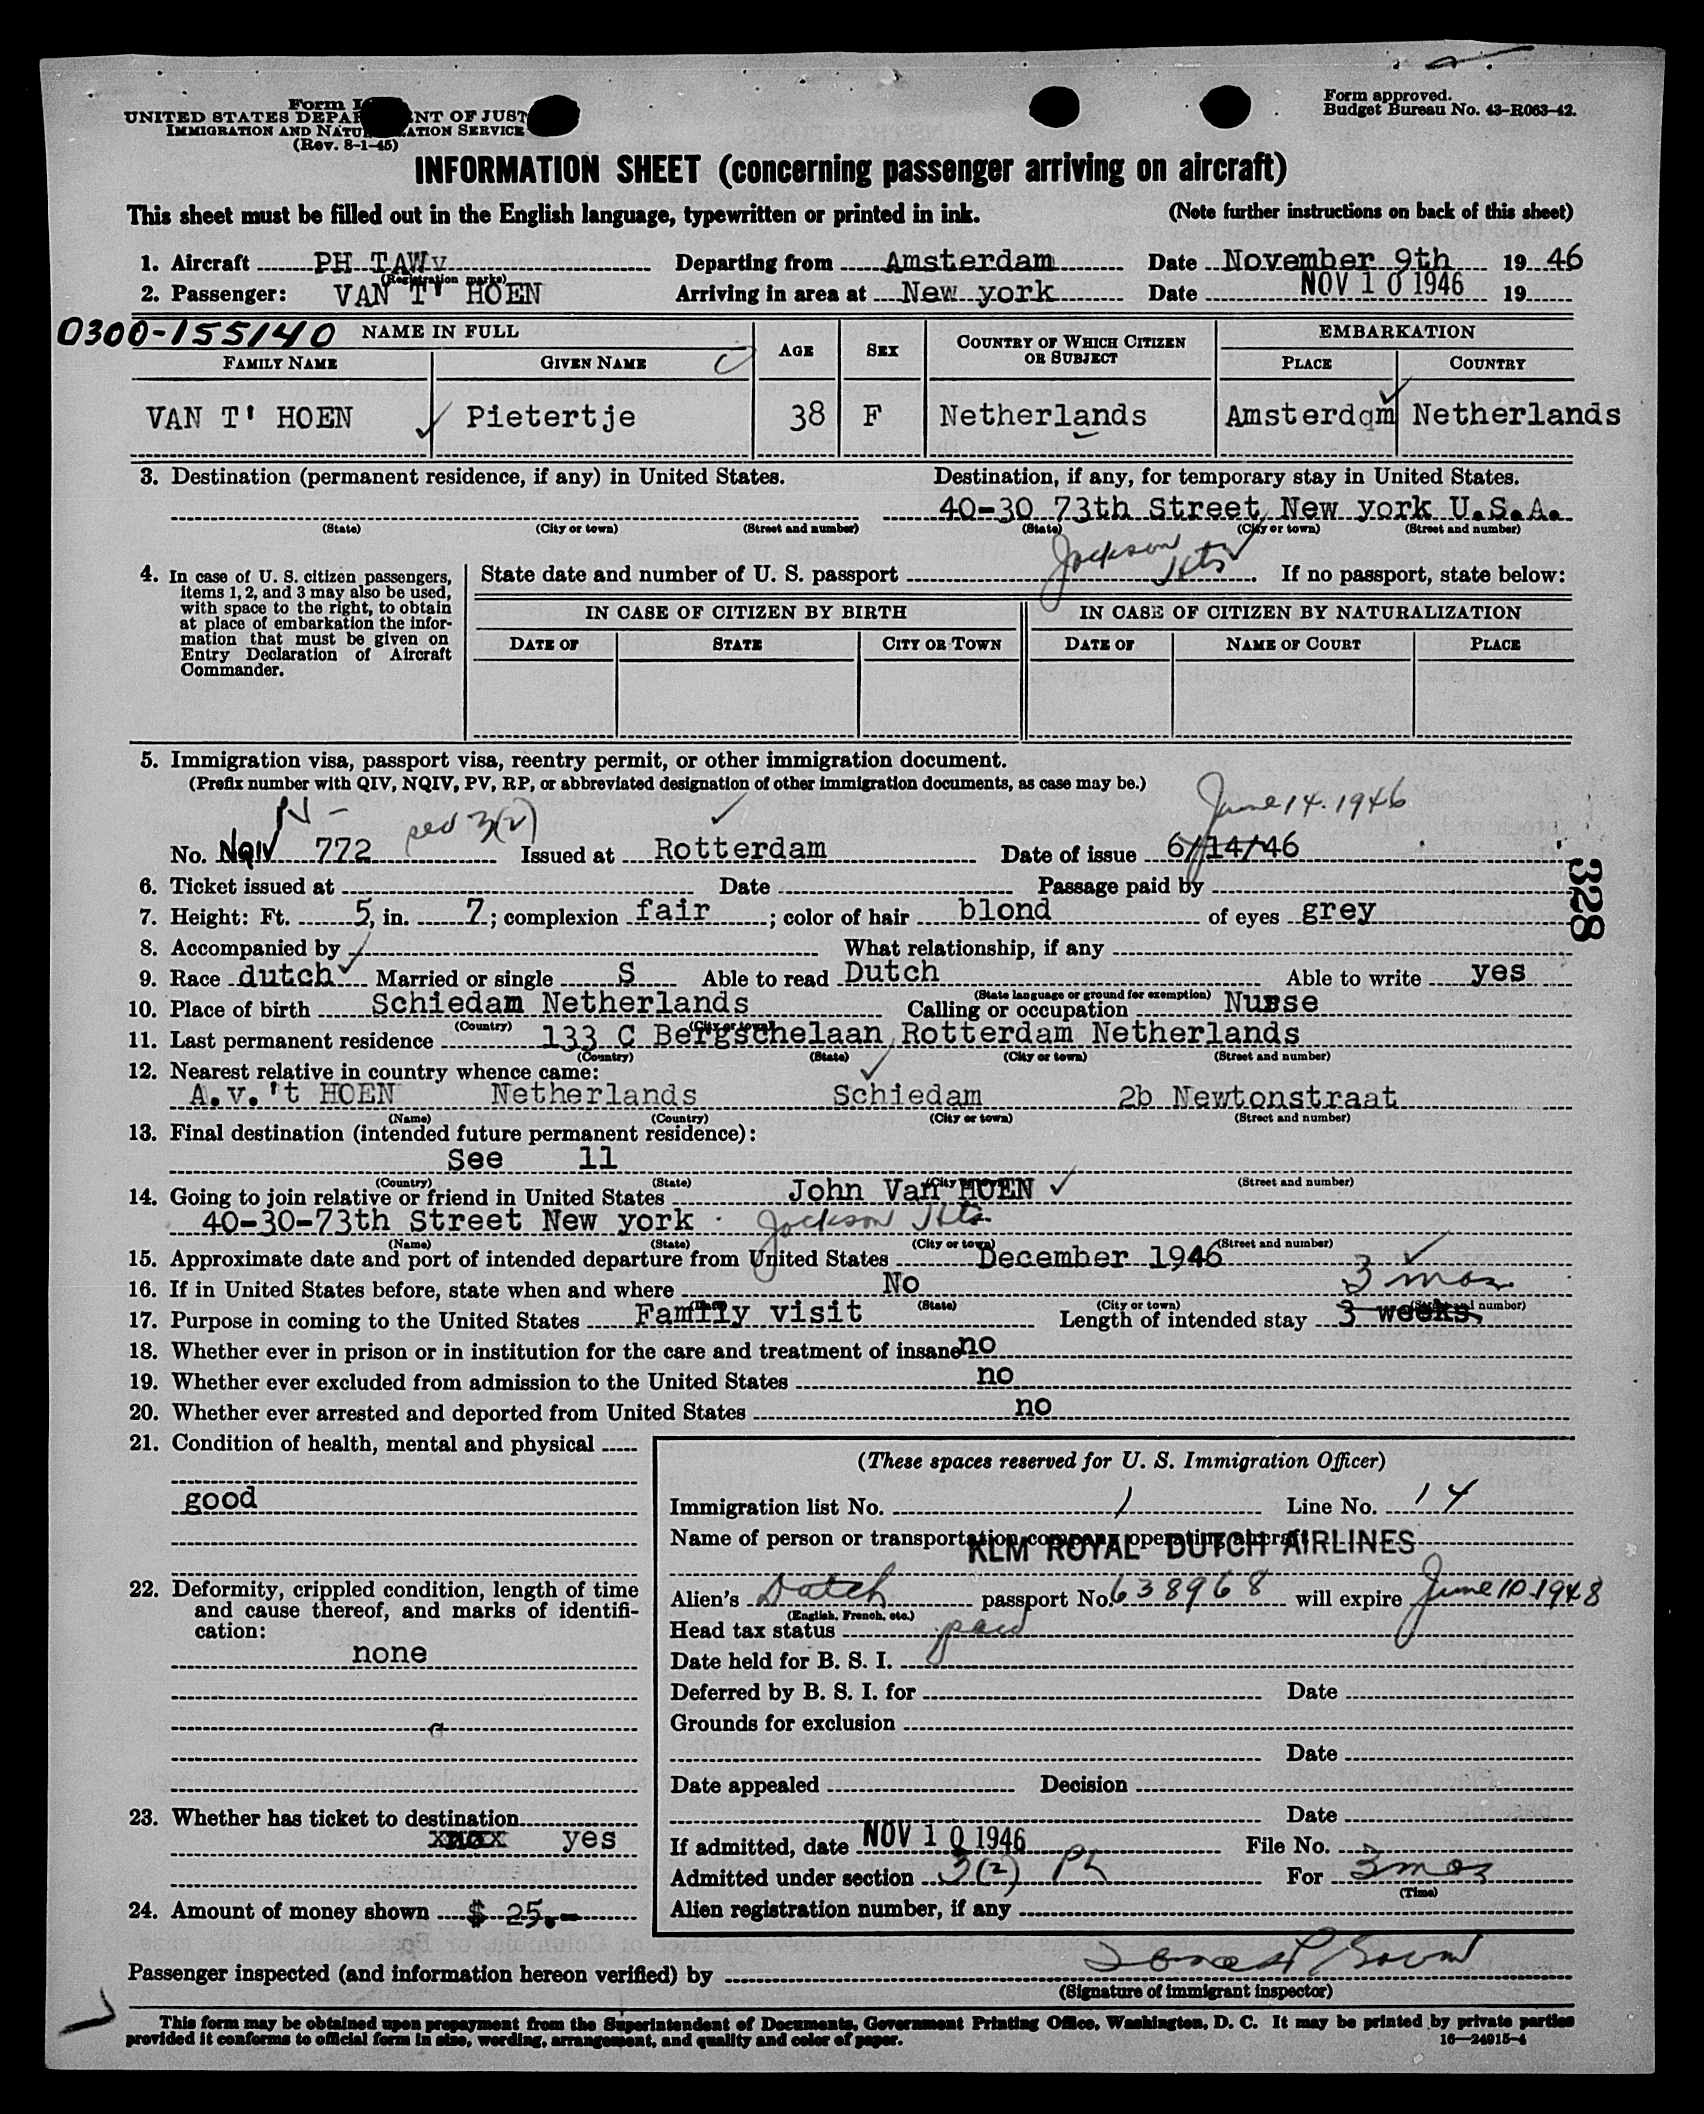 Form I
UNITED STATES DEPAR NT OF JUST
IMMIGRATION AND NATU ATION SERVICE
(Rev. 8-1-45)
Form approved.
Budget Bureau No. 43-R063-42.
INFORMATION SHEET (concerning passenger arriving on aircraft)
This sheet must be filled out in the English language, typewritten or printed in ink. (Note further instructions on back of this sheet)
1. Aircraft PH TAWv Departing from Amsterdam Date November 9th 19 46
(Registration marks)
2. Passenger: VAN T' HOEN Arriving in area at New york Date NOV 10 1946 19
0300-155140 NAME IN FULL AGE SEX COUNTRY OF WHICH CITIZEN OR SUBJECT EMBARKATION
FAMILY NAME GIVEN NAME PLACE COUNTRY
VAN T' HOEN Pietertje 38 F Netherlands Amsterdqm Netherlands
3. Destination (permanent residence, if any) in United States. Destination, if any, for temporary stay in United States.
40-30 73th Street, New york U.S.A.
(State) (City or town) (Street and number) (State) (City or town) (Street and number)
Jackson Hts
4. In case of U. S. citizen passengers, items 1, 2, and 3 may also be used, with space to the right, to obtain at place of embarkation the information that must be given on Entry Declaration of Aircraft Commander.
State date and number of U. S. passport If no passport, state below:
IN CASE OF CITIZEN BY BIRTH IN CASE OF CITIZEN BY NATURALIZATION
DATE OF STATE CITY OR TOWN DATE OF NAME OF COURT PLACE
5. Immigration visa, passport visa, reentry permit, or other immigration document.
(Prefix number with QIV, NQIV, PV, RP, or abbreviated designation of other immigration documents, as case may be.)
N- 3(2) June 14. 1946
No. NQIV 772 Issued at Rotterdam Date of issue 6/14/46
328
6. Ticket issued at Date Passage paid by
7. Height: Ft. 5, in. 7; complexion fair; color of hair blond of eyes grey
8. Accompanied by What relationship, if any
9. Race dutch Married or single S Able to read Dutch Able to write yes
(State language or ground for exemption)
10. Place of birth Schiedam Netherlands Calling or occupation Nurse
(Country) (City or town)
11. Last permanent residence 133 C Bergschelaan, Rotterdam Netherlands
(Country) (State) (City or town) (Street and number)
12. Nearest relative in country whence came:
A.v.'t HOEN Netherlands Schiedam 2b Newtonstraat
(Name) (Country) (City or town) (Street and number)
13. Final destination (intended future permanent residence):
See 11
(Country) (State) (City or town) (Street and number)
14. Going to join relative or friend in United States John Van HOEN
40-30-73th Street New york Jackson Hts.
(Name) (State) (City or town) (Street and number)
15. Approximate date and port of intended departure from United States December 1946
16. If in United States before, state when and where No 3 mos
(State) (City or town) (Street and number)
17. Purpose in coming to the United States Family visit Length of intended stay 3 weeks.
18. Whether ever in prison or in institution for the care and treatment of insane no
19. Whether ever excluded from admission to the United States no
20. Whether ever arrested and deported from United States no
21. Condition of health, mental and physical
good
22. Deformity, crippled condition, length of time and cause thereof, and marks of identification:
none
23. Whether has ticket to destination
yes
24. Amount of money shown $ 25.-
(These spaces reserved for U. S. Immigration Officer)
Immigration list No. 1 Line No. 14
Name of person or transportation company operating aircraft
KLM ROYAL DUTCH AIRLINES
Alien's Dutch passport No. 638968 will expire June 10 1948
(English, French, etc.)
Head tax status paid
Date held for B. S. I.
Deferred by B. S. I. for Date
Grounds for exclusion
Date
Date appealed Decision
Date
If admitted, date NOV 10 1946 File No.
Admitted under section 3(2) For 3 mos
(Time)
Alien registration number, if any
Passenger inspected (and information hereon verified) by
(Signature of immigrant inspector)
This form may be obtained upon prepayment from the Superintendent of Documents, Government Printing Office, Washington, D. C. It may be printed by private parties
provided it conforms to official form in size, wording, arrangement, and quality and color of paper. 16-24915-4